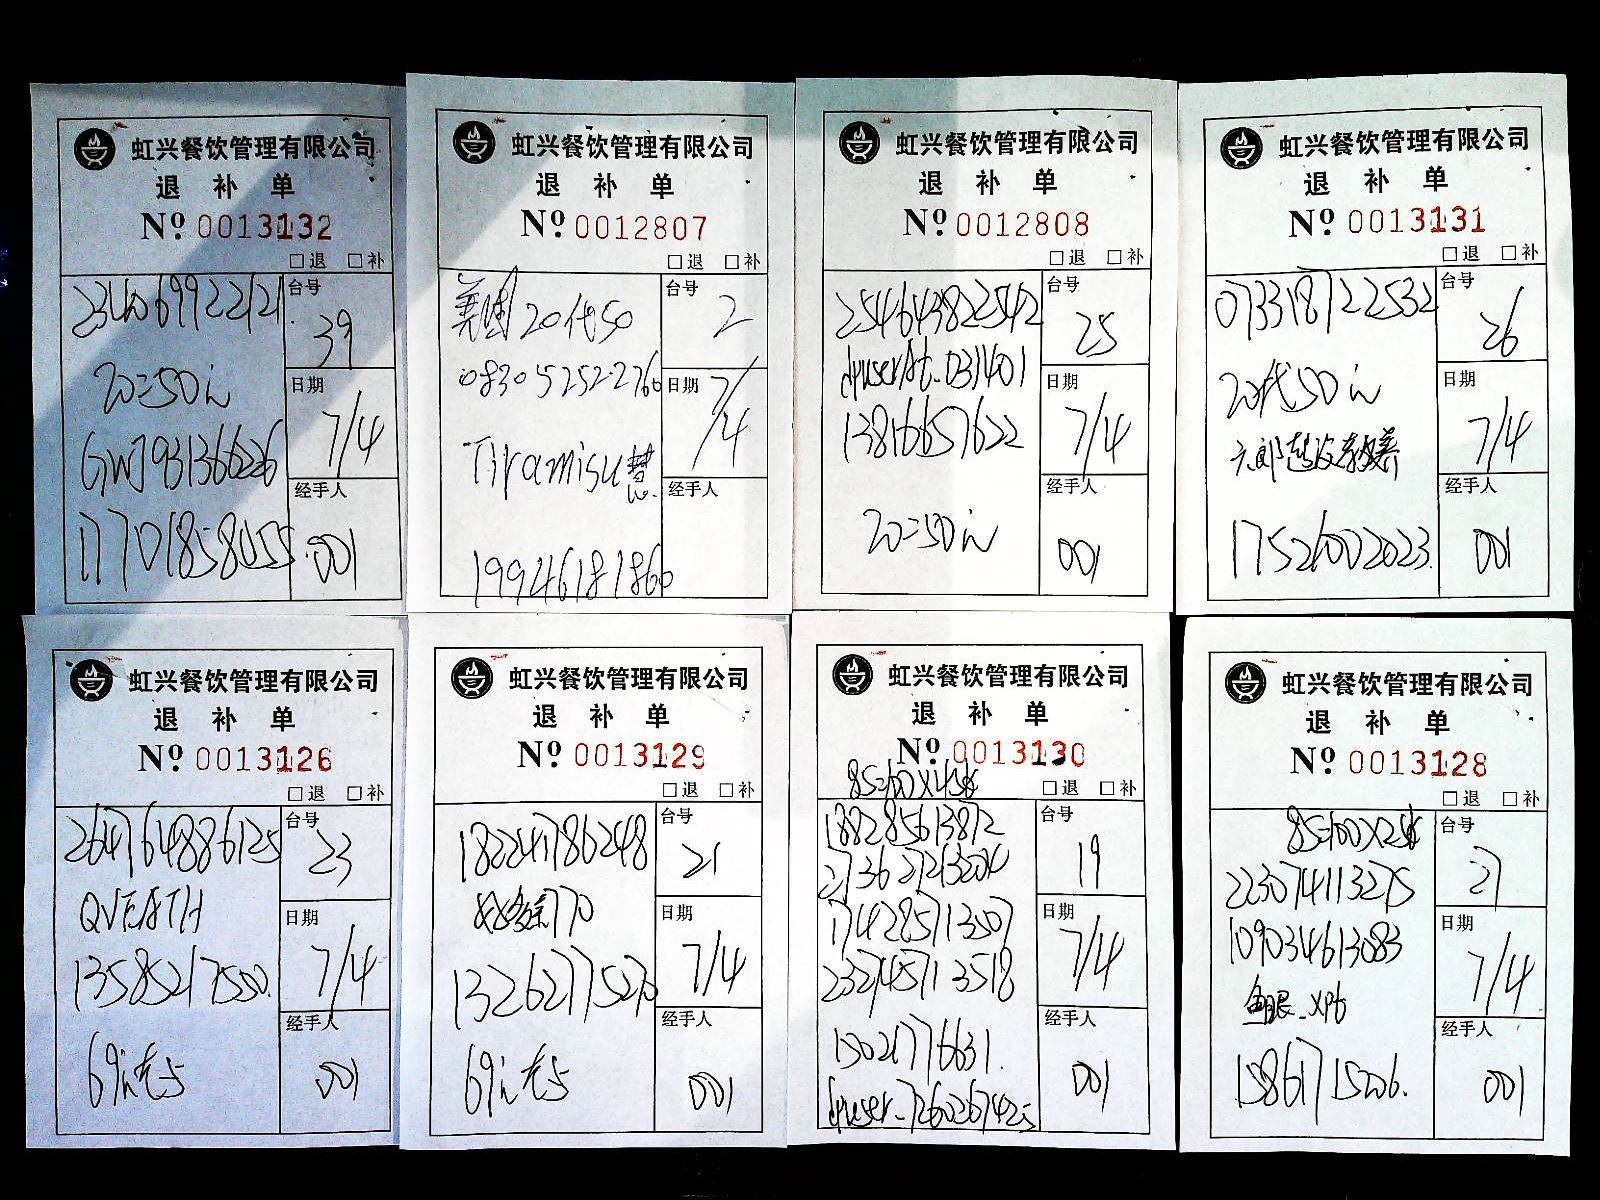 虹兴餐饮管理有限公司
退 补 单
Nº 0013132
□退 □补
台号
39
2341069922121
20=50
日期
7/4
GWJ931366226
经手人
17701858055
001
虹兴餐饮管理有限公司
退 补 单
Nº 0012807
□退 □补
台号
2
美团20代50
083052522760
日期
7/4
Tiramisu慧
经手人
19946181860
虹兴餐饮管理有限公司
退 补 单
Nº 0012808
□退 □补
台号
25
254643822542
日期
7/4
13816657622
经手人
20=50
001
虹兴餐饮管理有限公司
退 补 单
Nº 0013131
□退 □补
台号
26
0733187122532
20代50
日期
7/4
经手人
17526002023
001
虹兴餐饮管理有限公司
退 补 单
Nº 0013126
□退 □补
台号
23
2647164886125
日期
7/4
13585217550
经手人
001
虹兴餐饮管理有限公司
退 补 单
Nº 0013129
□退 □补
台号
21
182241786248
日期
7/4
13262775270
经手人
001
虹兴餐饮管理有限公司
退 补 单
Nº 0013130
85=100X4
□退 □补
台号
19
188285613872
273627213204
1742857113507
日期
7/4
2327457113518
经手人
13021776631
001
dpuser_7260267425
虹兴餐饮管理有限公司
退 补 单
Nº 0013128
□退 □补
85=100X2
台号
27
2230741113275
1090034613083
日期
7/4
鱼眼_xpb
经手人
15861715206
001